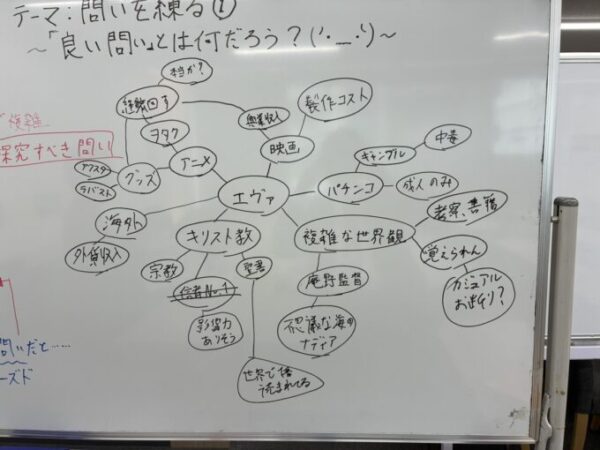 テーマ:問いを練る①
~「良い問い」とは何だろう?(・_・!)~
複雑
探究すべき問い
本当か?
経験回す
ヲタク
アニメ
グッズ
アクスタ
ラバスト
海外
外貨収入
興業収入
映画
製作コスト
エヴァ
パチンコ
ギャンブル
中毒
成人のみ
キリスト教
宗教
信者No.1
影響力
ありそう
聖書
世界で1番
読まれてる
複雑な世界観
考察、書籍
覚えられん
カジュアル
お断り?
庵野監督
不思議な海の
ナディア
問いだと……
ーズド